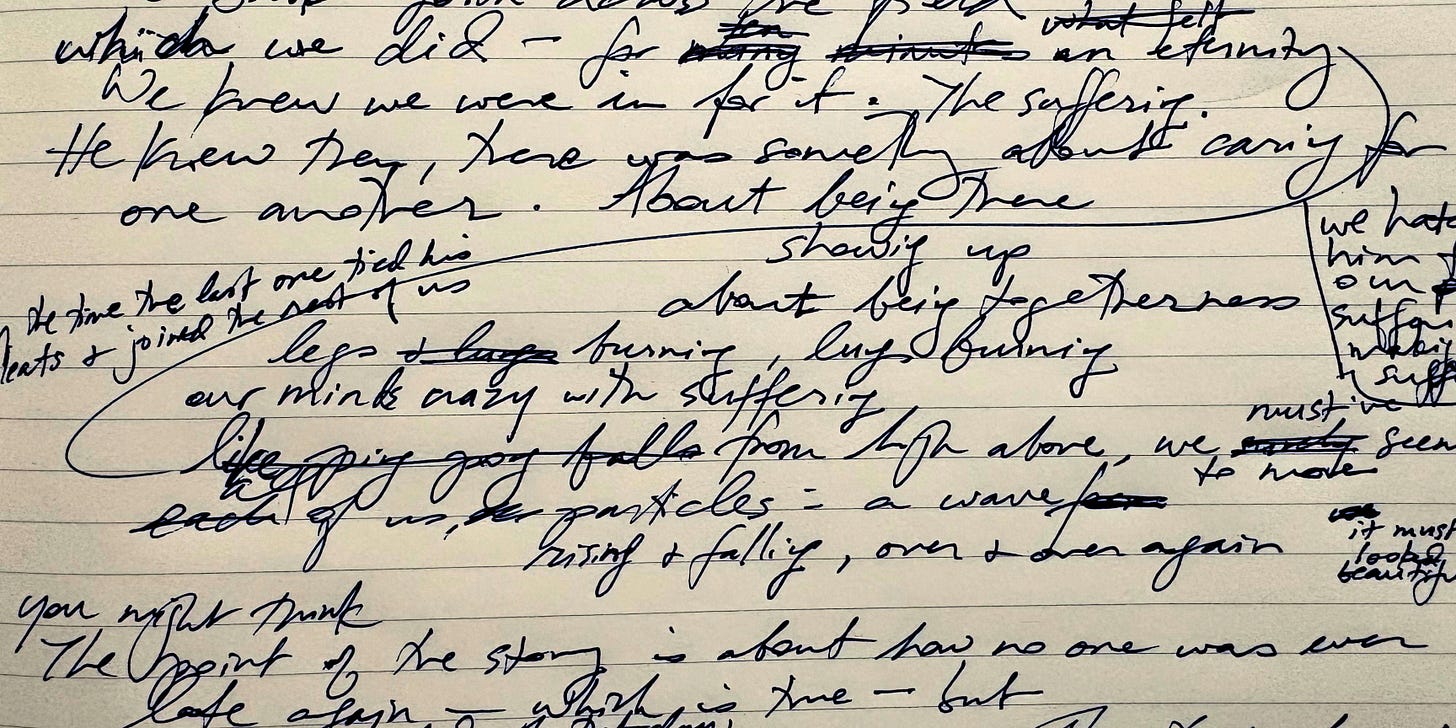 across the field
what felt
which we did - for ten many minutes an eternity
We knew we were in for it. The suffering.
He knew then, there was something about caring for
one another. About being there
showing up
about being togetherness
we hate
him
our
suff
the time the last one tied his
leats & joined the rest of us
legs & lungs burning, lungs burning
our minds crazy with suffering
must've
like ping pong balls from high above, we surely seem
to move
each of us, particles = a wave
rising & falling, over & over again
it must
looked
beautifu
you might think
The point of the story is about how no one was ever
late again - which is true - but